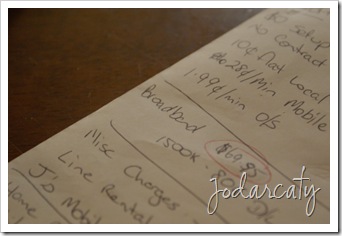 No Setup
No Contract
10¢ flat Local
28¢/Min Mobile
1.99¢/min o/s
Broadband
$69.95
1500K
Misc Charges
Line Rental
J's Mobile
Home
Jodarcaty